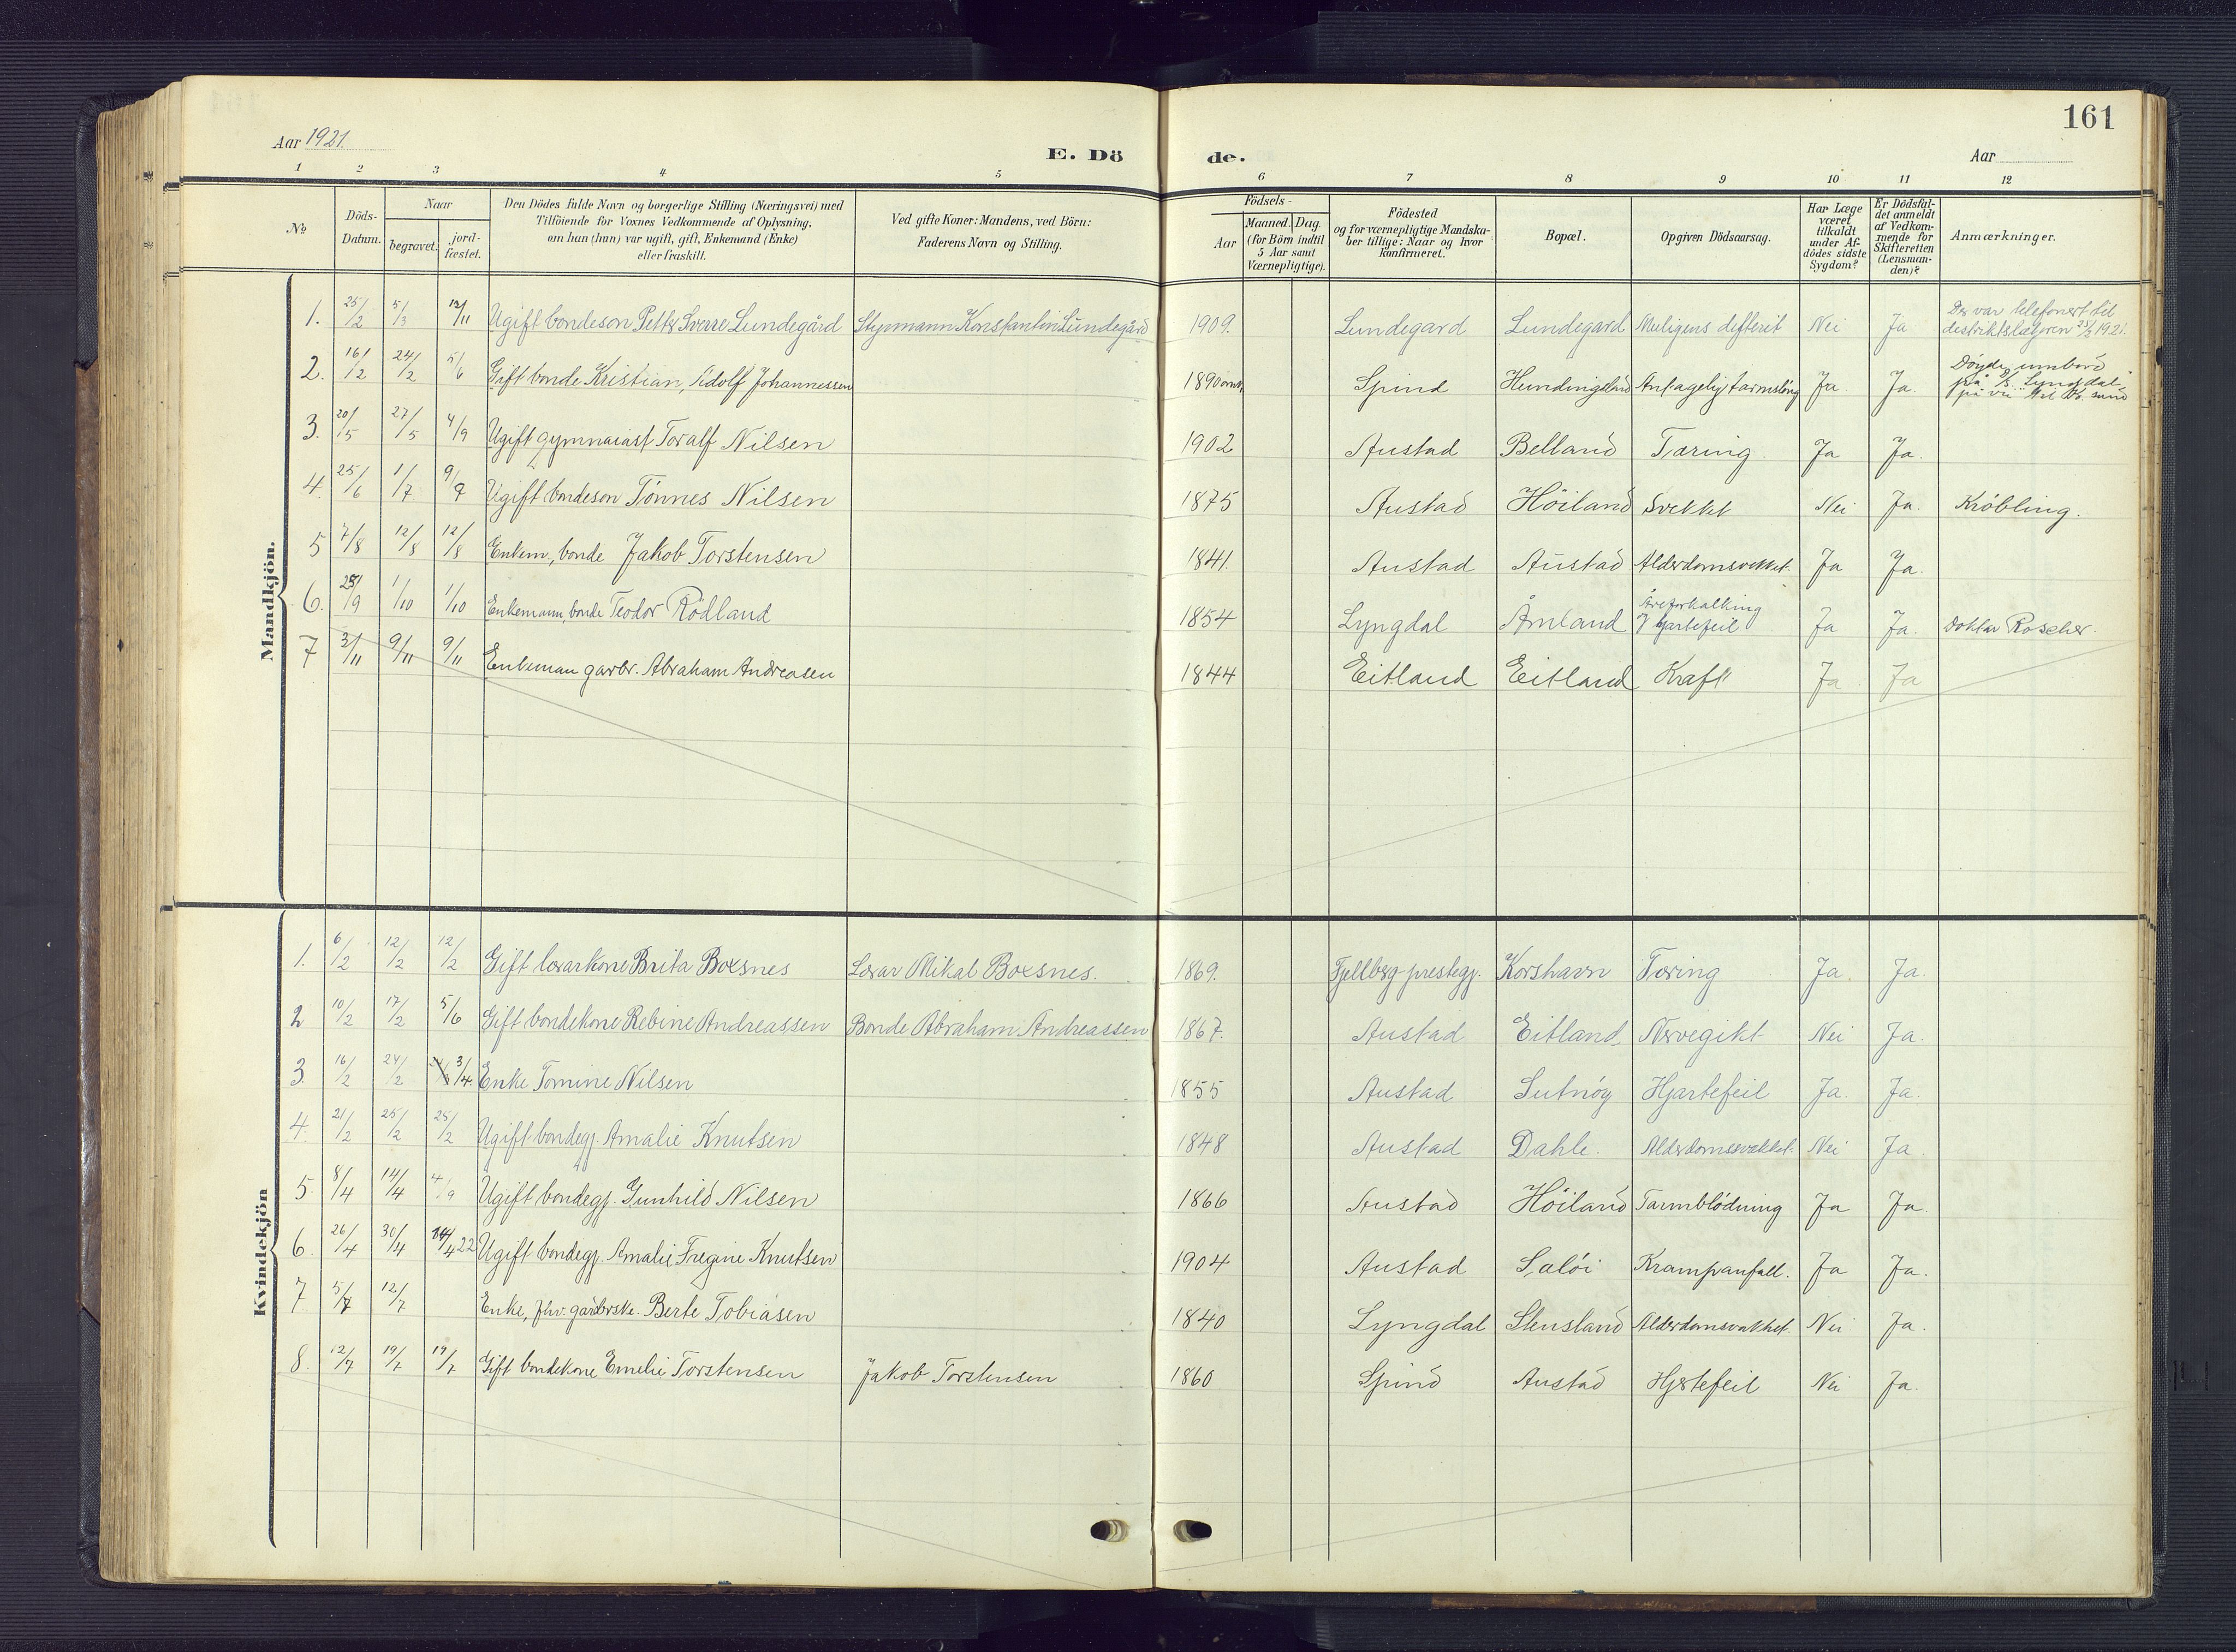 161
Aar 1921.
E. Dö
de.
Aar
1 2 3 4 5 6 7 8 9 10 11 12
No
Döds-
Datum.
Naar
begravet.
jord-
fæstet.
Den Dödes fulde Navn og borgerlige Stilling (Næringsvei) med
Tilföiende for Voxnes Vedkommende af Oplysning,
om han (hun) var ugift, gift, Enkemand (Enke)
eller fraskilt.
Ved gifte Koner: Mandens, ved Börn:
Faderens Navn og Stilling.
Födsels-
Aar
Maaned. Dag.
(for Börn indtil
5 Aar samt
Værnepligtige).
Födested
og for værnepligtige Mandska-
ber tillige: Naar og hvor
konfirmeret.
Bopæl.
Opgiven Dödsaarsag.
Har Læge
været
tilkaldt
under Af-
dödes sidste
Sygdom?
Er Dödsfal-
det anmeldt
af Vedkom-
mende for
Skifteretten
(Lensman-
den)?
Anmærkninger.
Mandkjön.
1. 25/2 5/3 12/11 Ugift bondeson Petter Sverre Lundegård Stypmann Konstantin Lundegård 1909. Lundegard Lundegard Muligens difterit Nei Ja Der var telefonert til
distriktslægen 25/2 1921.
2. 16/2 24/2 5/6 Gift bonde Kristian, Adolf Johannessen 1890 Spind Ja Ja Döyde umbord
på S. Lyngdal
på vei
3. 20/5 27/5 4/9 Ugift gymnasiast Toralf Nilsen 1902 Austad Belland Tæring Ja Ja.
4. 25/6 1/7 9/9 Ugift bondeson Tönnes Nilsen 1875 Austad Höiland Svekket Nei Ja. Kröbling.
5 7/8 12/8 12/8 Enkem., bonde Jakob Torstensen 1841. Austad Austad Alderdomsvekket. Ja Ja.
6. 25/9 1/10 1/10 Enkemann, bonde Teodor Rödland 1854 Lyngdal Åmland Åreforkalking
Hjartefeil Ja Ja. Doktar Roscher.
7 3/11 9/11 9/11 Enkeman garbr. Abraham Andreasen 1844 Eitland Eitland Kræft Ja Ja
Kvindekjön
1. 6/2 12/2 12/2 Gift lærarkone Brita Boxsnes Lærar Mikal Boxsnes. 1869. Fjellberg prestegj. Korshavn Tæring Ja. Ja.
2 10/2 17/2 5/6 Gift bondekone Rebine Andreassen Bonde Abraham Andreassen 1867. Austad Eitland, Nervegikt Nei Ja.
3 16/2 24/2 3/4 Enke Tomine Nilsen 1855 Austad Sutnöy Hjartefeil Ja. Ja.
4. 21/2 25/2 25/2 Ugift bondegj. Amalie Knutsen 1848 Austad Dahle. Alderdomssvekket. Nei Ja.
5. 8/4 14/4 4/9 Ugift bondegj. Gunhild Nilsen 1866 Austad Höiland Tarmblödning Ja Ja.
6. 26/4 30/4 /4 22 Ugift bondegj. Amalie Fregine Knutsen 1904 Austad Salöi Krampanfall. Ja Ja.
7 5/7 12/7 Enke, fhv. gårbrske. Berte Tobiasen 1840 Lyngdal Stensland Alderdomsvakhet. Nei Ja.
8. 12/7 19/7 19/7 Gift bondekone Emelie Torstensen Jakob Torstensen 1860 Spind Austad Hjertefeil Nei Ja.